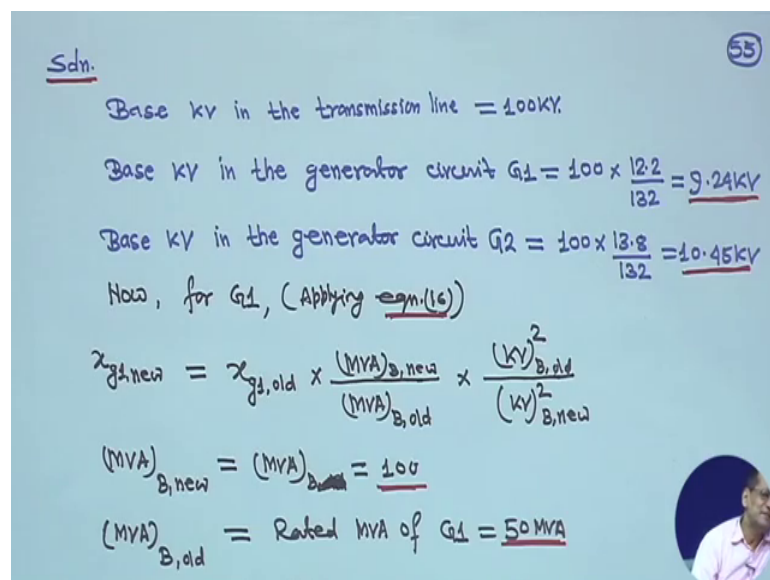 55
Soln.
Base kV in the transmission line = 100KV.
Base KV in the generator circuit G1 = 100 × 12.2/132 = 9.24KV
Base KV in the generator circuit G2 = 100 × 13.8/132 = 10.45KV
Now, for G1, (Applying eqn.(16))
x_g1,new = x_g1,old × (MVA)_B,new/(MVA)_B,old × (KV)²_B,old/(KV)²_B,new
(MVA)_B,new = (MVA)_B = 100
(MVA)_B,old = Rated MVA of G1 = 50 MVA